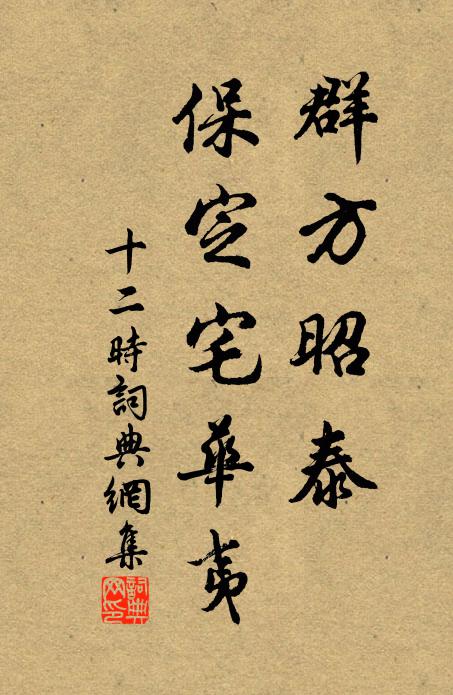 群方昭泰
保定宅華夷
十二時詞典網集
詞典網印